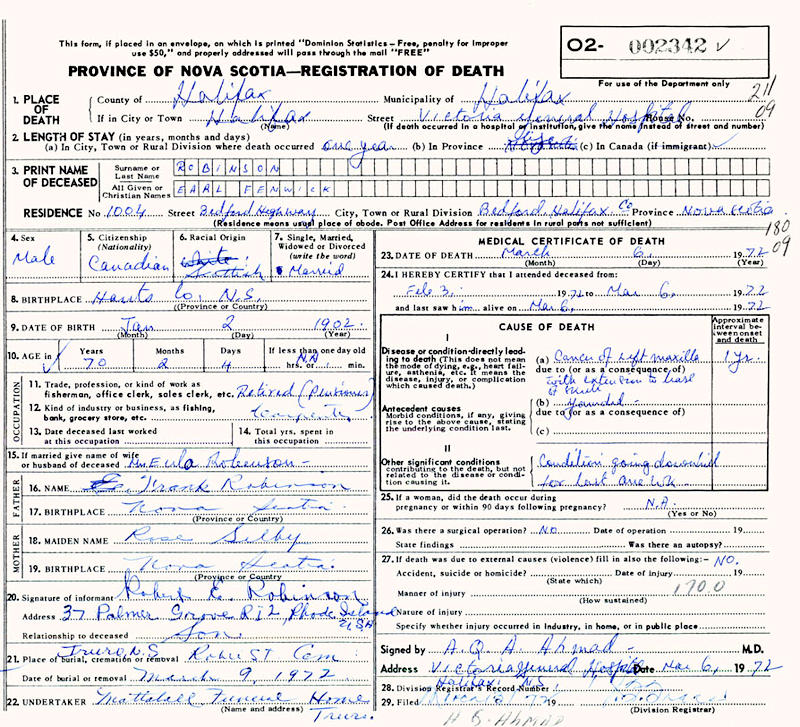 This form, if placed in an envelope, on which is printed "Dominion Statistics - Free, penalty for improper
use $50," and properly addressed will pass through the mail "FREE"
O2- 002342
For use of the Department only
PROVINCE OF NOVA SCOTIA—REGISTRATION OF DEATH
211
09
1. PLACE OF DEATH
County of Halifax Municipality of Halifax
If in City or Town Halifax Street Victoria General Hospital House No.
(Name) (If death occurred in a hospital or institution, give the name instead of street and number)
2. LENGTH OF STAY (in years, months and days)
(a) In City, Town or Rural Division where death occurred one year (b) In Province (c) In Canada (if immigrant)
3. PRINT NAME OF DECEASED
Surname or Last Name ROBINSON
All Given or Christian Names EARL FENWICK
RESIDENCE No 1004 Street Bedford Highway City, Town or Rural Division Bedford Halifax Co Province Nova Scotia
(Residence means usual place of abode. Post Office Address for residents in rural parts not sufficient)
180
09
4. Sex
Male
5. Citizenship (Nationality)
Canadian
6. Racial Origin
Scottish
7. Single, Married, Widowed or Divorced (write the word)
Married
8. BIRTHPLACE Hants Co. N.S.
(Province or Country)
9. DATE OF BIRTH Jan 2 1902
(Month) (Day) (Year)
10. AGE in
Years Months Days If less than one day old
70 2 4 N.A hrs. or min.
OCCUPATION
11. Trade, profession, or kind of work as fisherman, office clerk, sales clerk, etc. Retired (Pensioner)
12. Kind of industry or business, as fishing, bank, grocery store, etc.
13. Date deceased last worked at this occupation
14. Total yrs. spent in this occupation
15. If married give name of wife or husband of deceased Mrs Eula Robinson
FATHER
16. NAME Frank Robinson
17. BIRTHPLACE Nova Scotia
(Province or Country)
MOTHER
18. MAIDEN NAME Rose Silby
19. BIRTHPLACE Nova Scotia
(Province or Country)
20. Signature of informant Robert E. Robinson
Address 37 Palmer Grove RI2, Rhode Island USA
Relationship to deceased Son
21. Place of burial, cremation or removal Truro N.S. Robie St Cem
Date of burial or removal March 9, 1972
22. UNDERTAKER Mattatall Funeral Home
(Name and address) Truro
MEDICAL CERTIFICATE OF DEATH
23. DATE OF DEATH March 6, 1972
(Month) (Day) (Year)
24. I HEREBY CERTIFY that I attended deceased from:
Feb 3, 1972 to Mar 6, 1972
and last saw him alive on Mar 6, 1972
CAUSE OF DEATH
Approximate interval between onset and death
I
Disease or condition directly leading to death (This does not mean the mode of dying, e.g., heart failure, asthenia, etc. It means the disease, injury, or complication which caused death.)
(a) Cancer of Left maxilla 1 yr.
due to (or as a consequence of)
with extension to base of skull
Antecedent causes
Morbid conditions, if any, giving rise to the above cause, stating the underlying condition last.
(b)
due to (or as a consequence of)
(c)
II
Other significant conditions contributing to the death, but not related to the disease or condition causing it.
Condition going downhill for last one wk.
25. If a woman, did the death occur during pregnancy or within 90 days following pregnancy? N.A.
(Yes or No)
26. Was there a surgical operation? NO Date of operation 19
State findings Was there an autopsy?
27. If death was due to external causes (violence) fill in also the following:- NO.
Accident, suicide or homicide? Date of injury 19
(State which)
Manner of injury 170.0
(How sustained)
Nature of injury
Specify whether injury occurred in industry, in home, or in public place
Signed by A. Q. A. Ahmad M.D.
Address Victoria General Hospital Date Mar 6, 1972
Halifax N.S.
28. Division Registrar's Record Number
29. Filed
(Division Registrar)